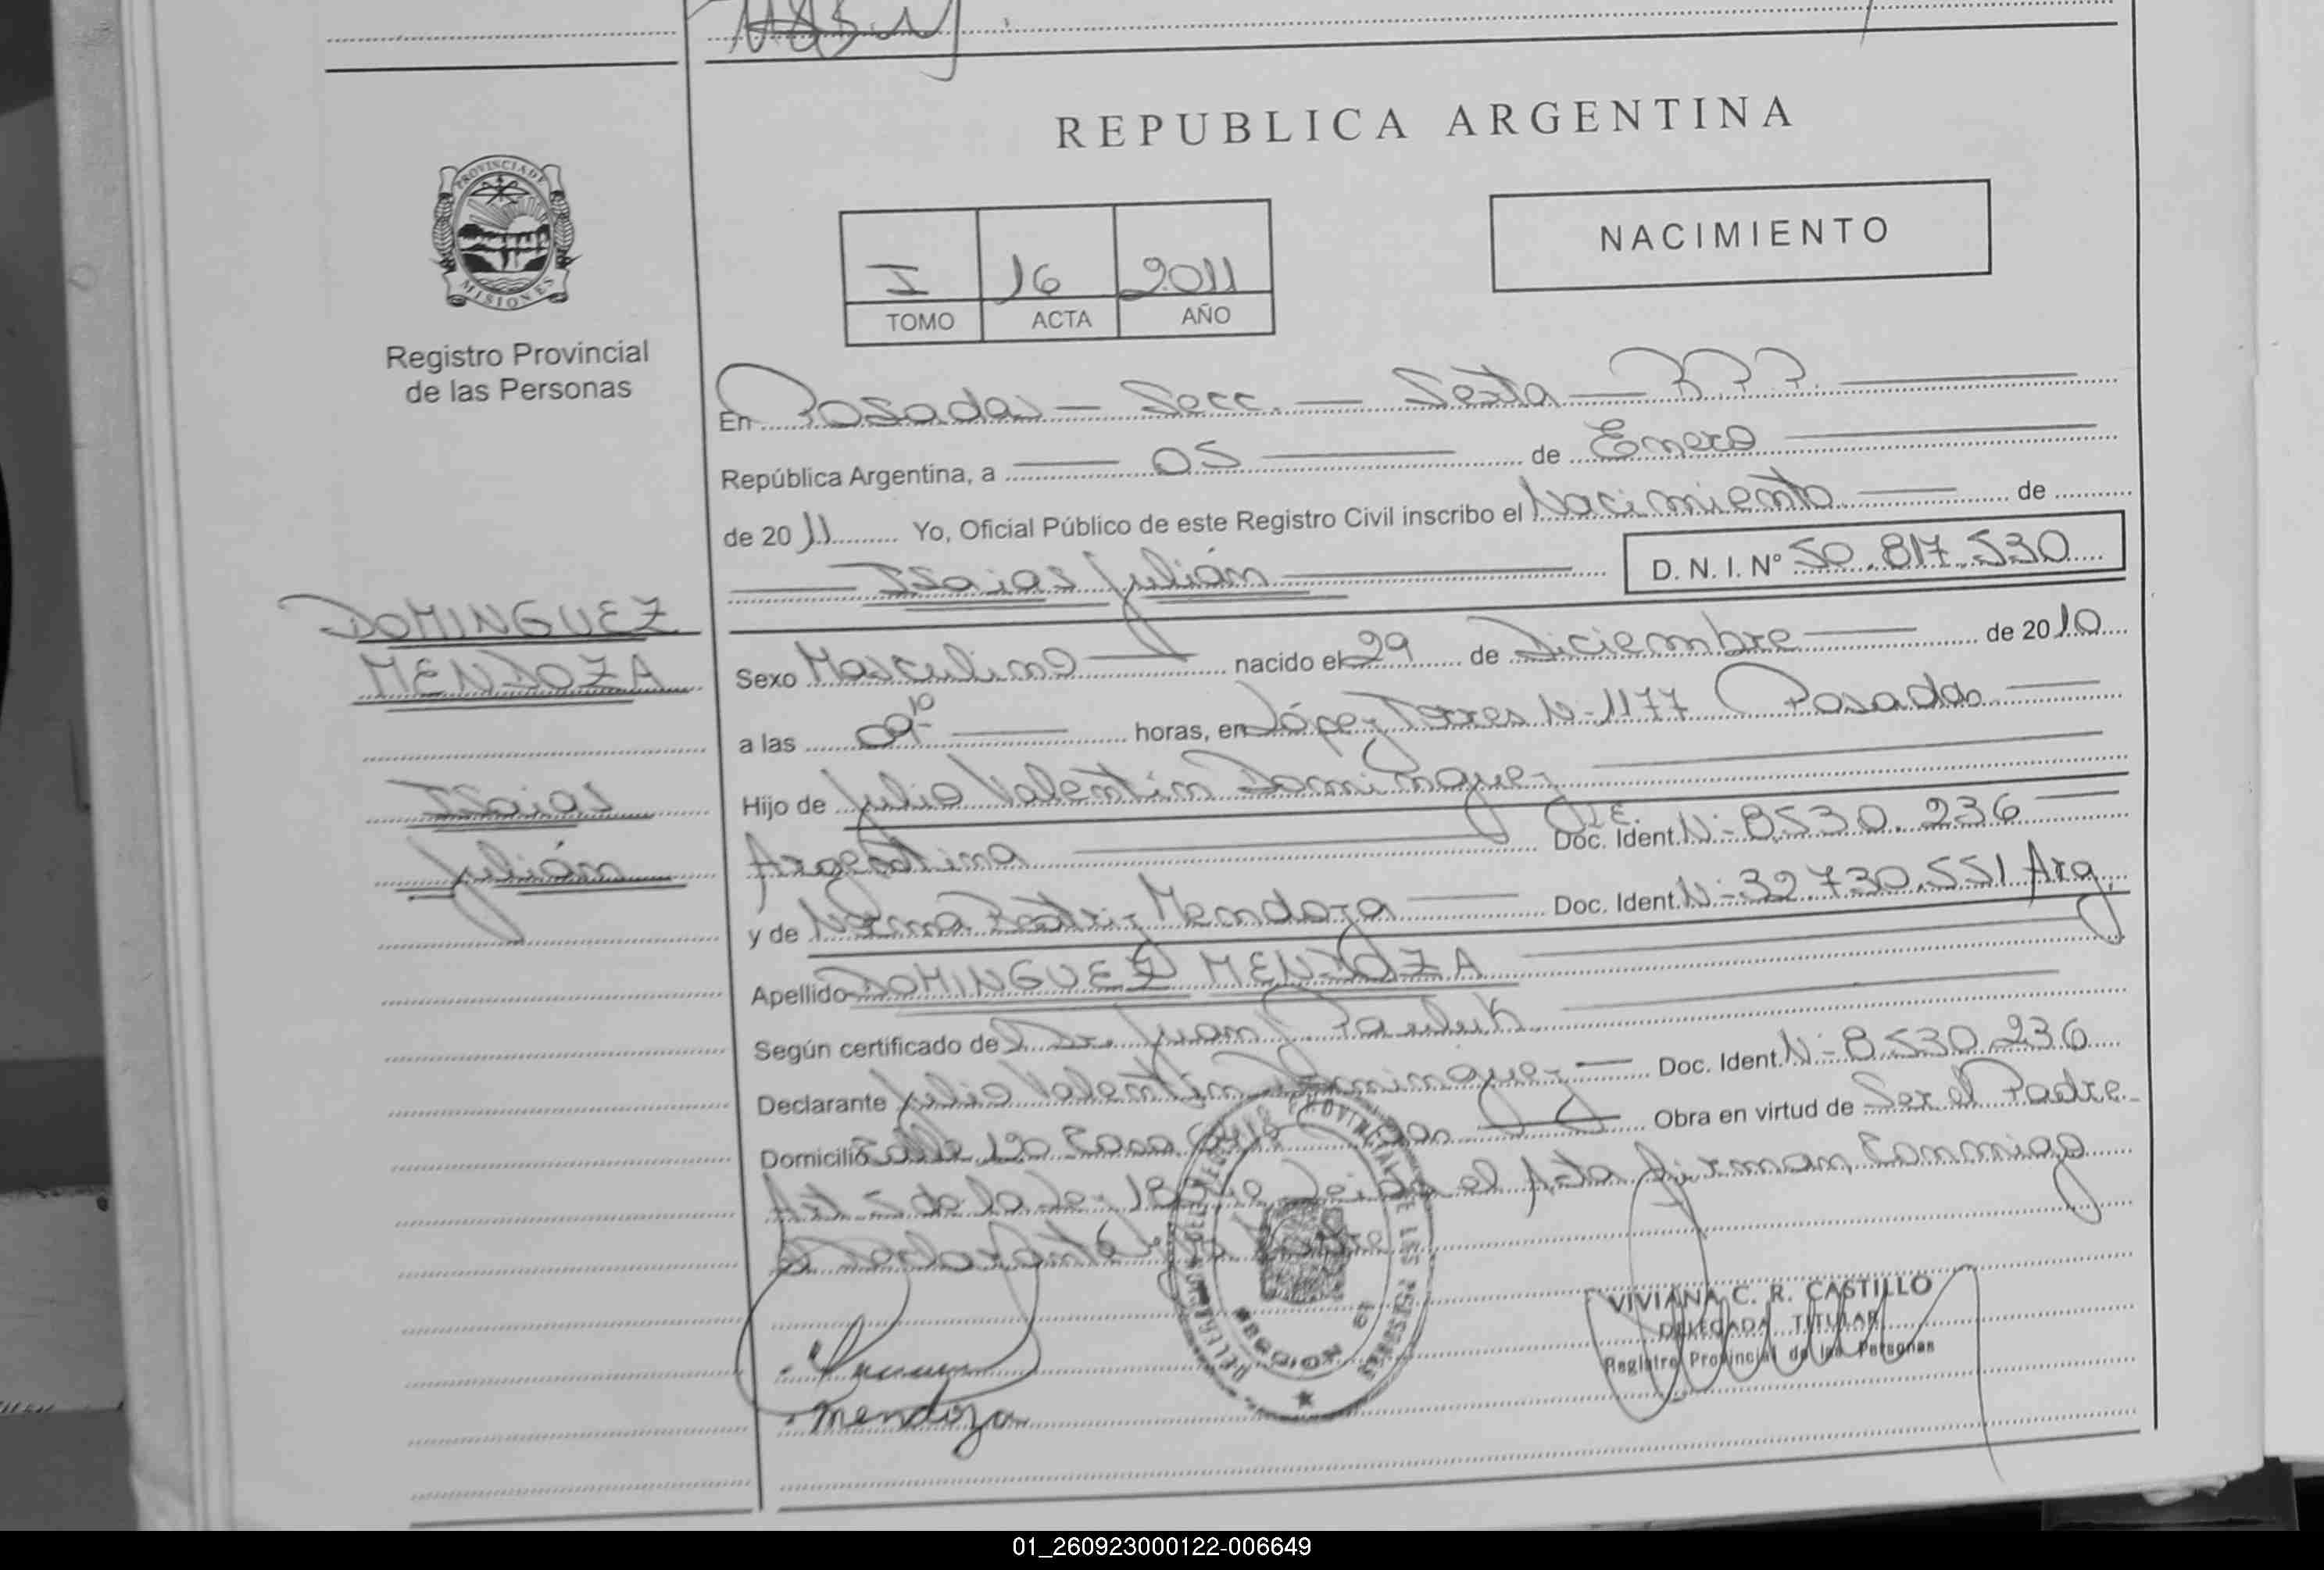 REPUBLICA ARGENTINA
PROVINCIA DE MISIONES
Registro Provincial
de las Personas
NACIMIENTO
I 16 2011
TOMO ACTA AÑO
En Posadas - Secc. - Sexta -
República Argentina, a 05 de Enero
de 2011 Yo, Oficial Público de este Registro Civil inscribo el Nacimiento de
Isaias Julián D.N.I. Nº 50.817.530
DOMINGUEZ
MENDOZA
Isaias
Julián
Sexo Masculino nacido el 29 de Diciembre de 2010
a las 09 10 horas, en López Torres N-1177 Posadas
Hijo de Julio Valentin Dominguez
Argentina Doc. Ident. N-8.530.236
y de Norma Beatriz Mendoza Doc. Ident. N-32.730.551 Arg.
Apellido DOMINGUEZ MENDOZA
Según certificado de Dr. Juan
Declarante Julio Valentin Dominguez Doc. Ident. N-8.530.236
Domicilio Obra en virtud de Ser el Padre.
Leida el Acta firman
Mendoza
VIVIANA C. R. CASTILLO
DELEGADA TITULAR
Registro Provincial de las Personas
01_260923000122-006649